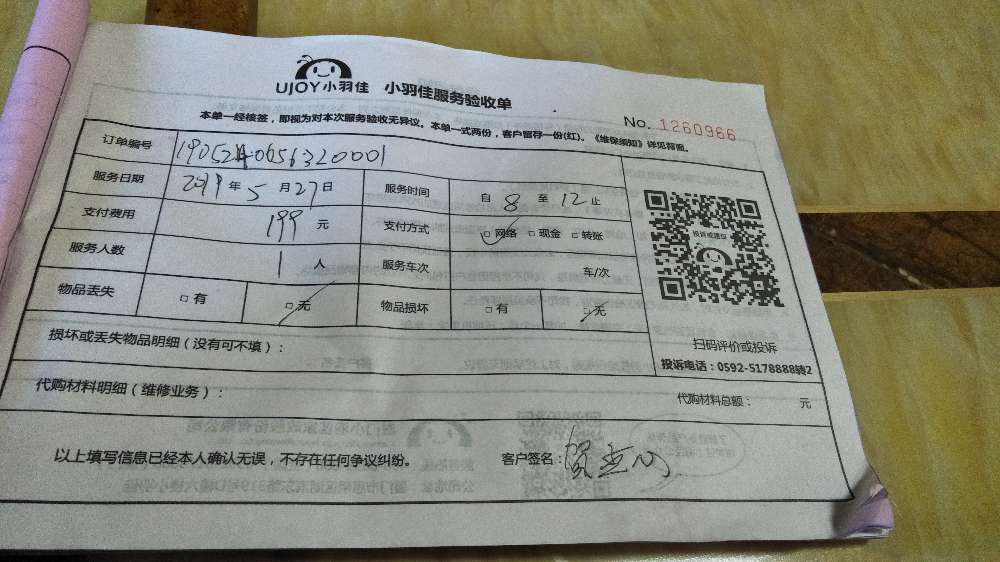 UJOY小羽佳 小羽佳服务验收单
No. 1260966
本单一经核签，即视为对本次服务验收无异议。本单一式两份，客户留存一份(红)。《维保须知》详见背面。
订单编号
服务日期 2019 年 5 月 27 日 服务时间 自 8 至 12 止
支付费用 199 元 支付方式 □网络 □现金 □转账
投诉或建议
服务人数 1 人 服务车次 车/次
物品丢失 □有 □无 物品损坏 □有 □无
扫码评价或投诉
投诉电话：0592-5178888转2
损坏或丢失物品明细（没有可不填）：
代购材料明细（维修业务）： 代购材料总额： 元
以上填写信息已经本人确认无误，不存在任何争议纠纷。 客户签名：